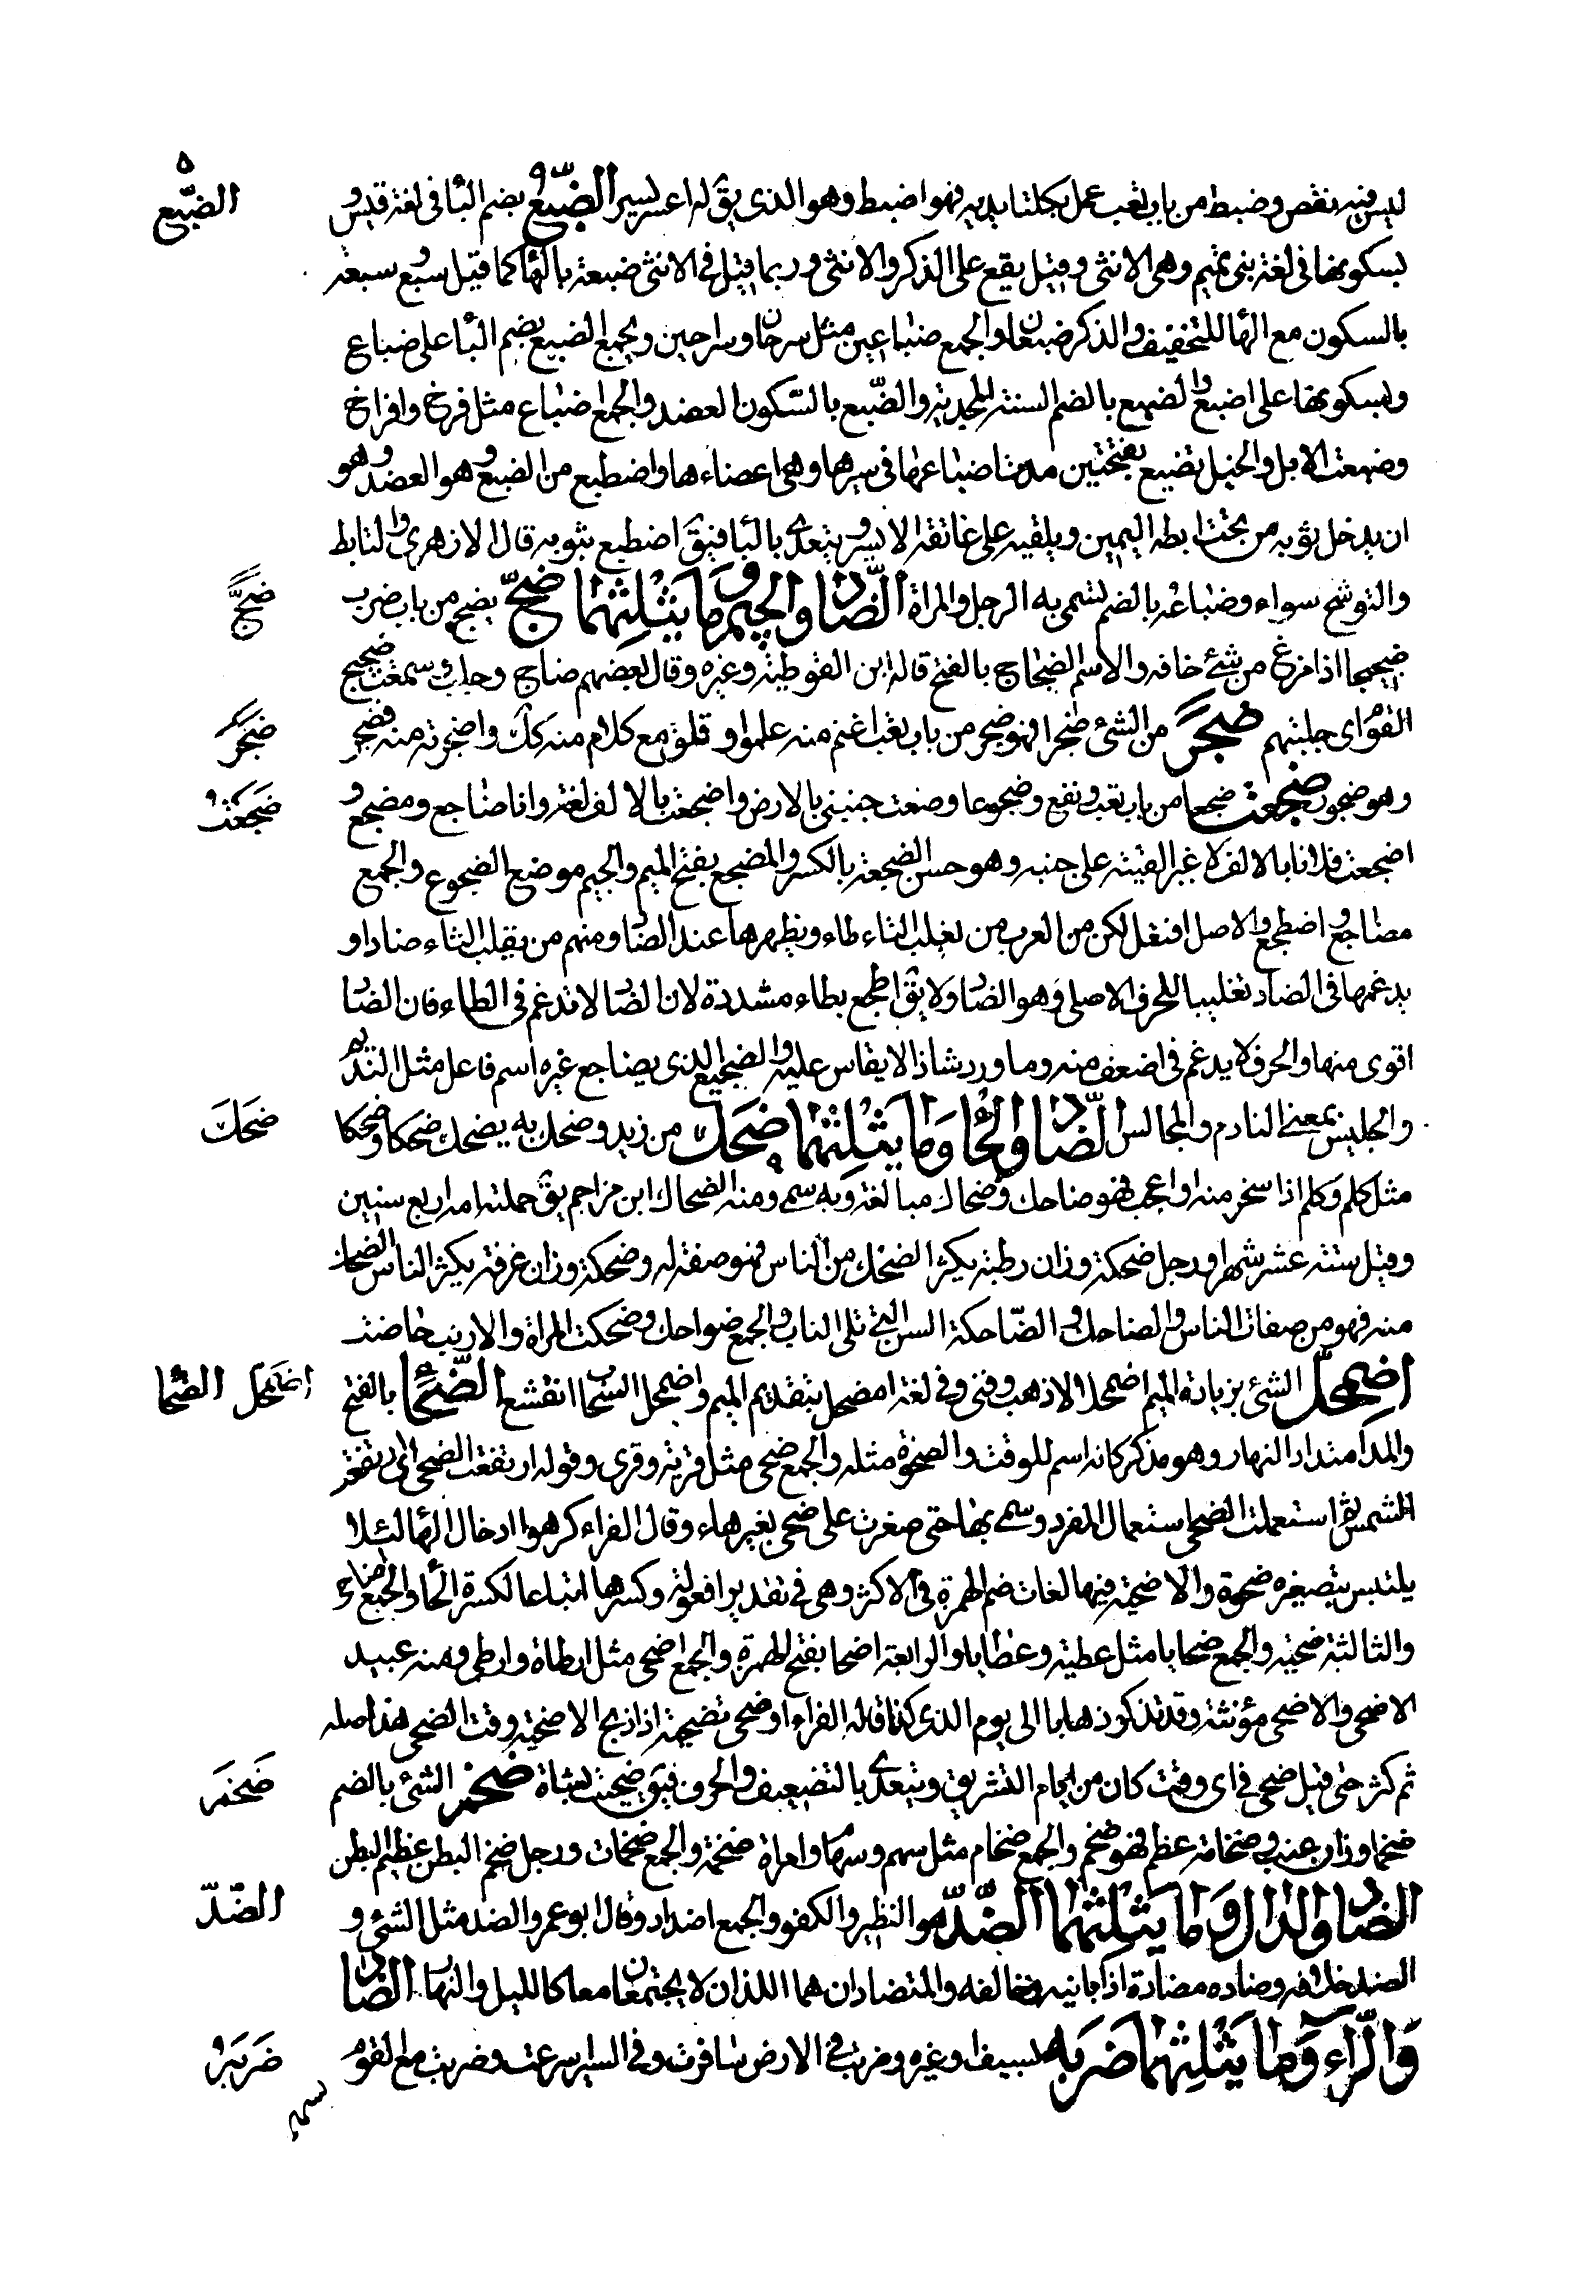 ليس فيه نقص وضبط من باب تعب عمل بكلتا يديه فهو اضبط وهو الذى يق له اعسر يسير الضَّبُع بضم البا فى لغة قيس و
الضبّع
بسكونها فى لغة بنى تميم وهى الانثى وقيل يقع على الذكر والانثى وربما قيل فى الانثى ضبعة بالها كما قيل سبع وسبعة
بالسكون مع الها للتخفيف والذكر ضبعان والجمع ضباعين مثل سرحان وسراحين ويجمع الضبع بضم البا على ضباع
وبسكونها على اضبع والضبع بالضم السنة المجدبة والضّبع بالسّكون العضد والجمع اضباع مثل فرخ وافراخ
وضبعت الابل والخيل تضبع بفتحتين مدت اضباعها فى سيرها وهى اعضاءها واضطبع من الضبع وهو العضد وهو
ان يدخل ثوبه من تحت ابطه اليمين ويلقيه على عاتقه الايسر ويتعدى بالبا فيق اضطبع بثوبه قال الازهرى والتابط
والتوشح سواء وضباعه بالضم سمى به الرجل والمراة الضّاد والجيم وَما يَثْلِثهُما ضجّ يضج من باب ضرب
ضَجَّ
ضجيجا اذا فزع من شئ خافه والاسم الضجاج بالفتح قاله ابن القوطية وغيره وقال بعضهم ضاج وجلب سمعت ضجيج
القوم اى جلبتهم ضَجَرَ من الشئ ضجرا فهو ضجر من باب تعب اغتم منه علموا وقلق مع كلام منه كك واضجرته منه فضجر
ضَجَرَ
وهو ضجور ضجعت ضجعا من باب تعب ونفع وضجوعا وضعت جنبى بالارض واضجعت بالالف لغة وانا ضاجع ومضجع و
ضَجَعَتْ
اضجعت فلانا بالالف لا غير القيته على جنبه وهو حسن الضجعة بالكسر والمضجع بفتح الميم والجيم موضع الضجوع والجمع
مضاجع واضطجع والاصل افتعل لكن من العرب من يقلب التاء طاء ويظهرها عند الضاد ومنهم من يقلب التاء ضادا و
يدغمها فى الضاد تغليبا للحرف الاصلى وهو الضاد ولا يق اطجع بطاء مشددة لان الضاد لا تدغم فى الطاء فان الضاد
اقوى منها والحرف لا يدغم فى اضعف منه وما ورد شاذ لا يقاس عليه والضجيع الذى يضاجع غيره اسم فاعل مثل النديم
والجليس بمعنى النادم والمجالس الضّاد والحا وَما يَثْلِثهما ضَحَك من زيد وضحك به يضحك ضحكا وضحكا
ضَحَكَ
مثل كلم وكلم اذا سخر منه او اعجب فهو ضاحك وضحاك مبالغة وبه سمى ومنه الضحاك ابن مزاحم يق حملته امه اربع سنين
وقيل ستة عشر شهرا ورجل ضحكة وزان رطبة يكثر الضحك من الناس فهو صفة له وضحكة وزان غرفة يكثر الناس الضحك
منه فهو من صفات الناس والضاحك و الضّاحكة السن التى تلى الناب والجمع ضواحك وضحكت المراة والارنب حاضت
اضمحلّ الشئ بزيادة الميم اضمحلالا ذهب وفنى وفى لغة امضحل بتقديم الميم واضمحل السحاب انقشع الضَّحا بالفتح
اضمحَل الضّحا
والمد امتداد النهار وهو مذكر كانه اسم للوقت والضحوة مثله والجمع ضحى مثل قرية وقرى وقوله ارتفعت الضحى اى ارتفعت
الشمس ثم استعملت الضحى استعمال المفرد وسمى بها حتى صغرت على ضحى بغير هاء وقال الفراء كرهوا ادخال الها لئلا
يلتبس بتصغيره ضحوة والاضحية فيها لغات ضم الهمزة فى الاكثر وهى فى تقدير افعولة وكسرها اتباعا لكسرة الحا والجمع اضاحى
والثالثة ضحية والجمع ضحايا مثل عطية وعطايا والرابعة اضحا بفتح الهمزة والجمع اضحى مثل ارطاة وارطى ومنه عيد
الاضحى والاضحى مؤنثة وقد تذكر ذهابا الى يوم الذى كذا قاله الفراء وضحى تضحية اذا ذبح الاضحية وقت الضحى هذا اصله
ثم كثر حتى قيل ضحى فى اى وقت كان من ايام التشريق ويتعدى بالتضعيف والحرف فيق ضحيت بشاة ضخم الشئ بالضم
ضَخمَ
ضخما وزان عنب وضخامة عظم فهو ضخم والجمع ضخام مثل سهم وسهام وامراة ضخمة والجمع ضخمات ورجل ضخم البطن عظيم البطن
الضاد والدال وَمَا يَثْلِثهما الضّدّ هو النظير والكفو والجمع اضداد وقال ابو عمرو الضد مثل الشئ و
الضّدّ
الضد خلافه وضاده مضادة اذا باينه مخالفه والمتضادان هما اللذان لا يجتمعان معا كالليل والنهار الضّاد
وَالرّاءِ وَمَا يَثْلِثهُما ضَرَبَه بسيف او غيره وضربت فى الارض سافرت وفى السير سرعت وضربت مع القوم
ضَرَبَه